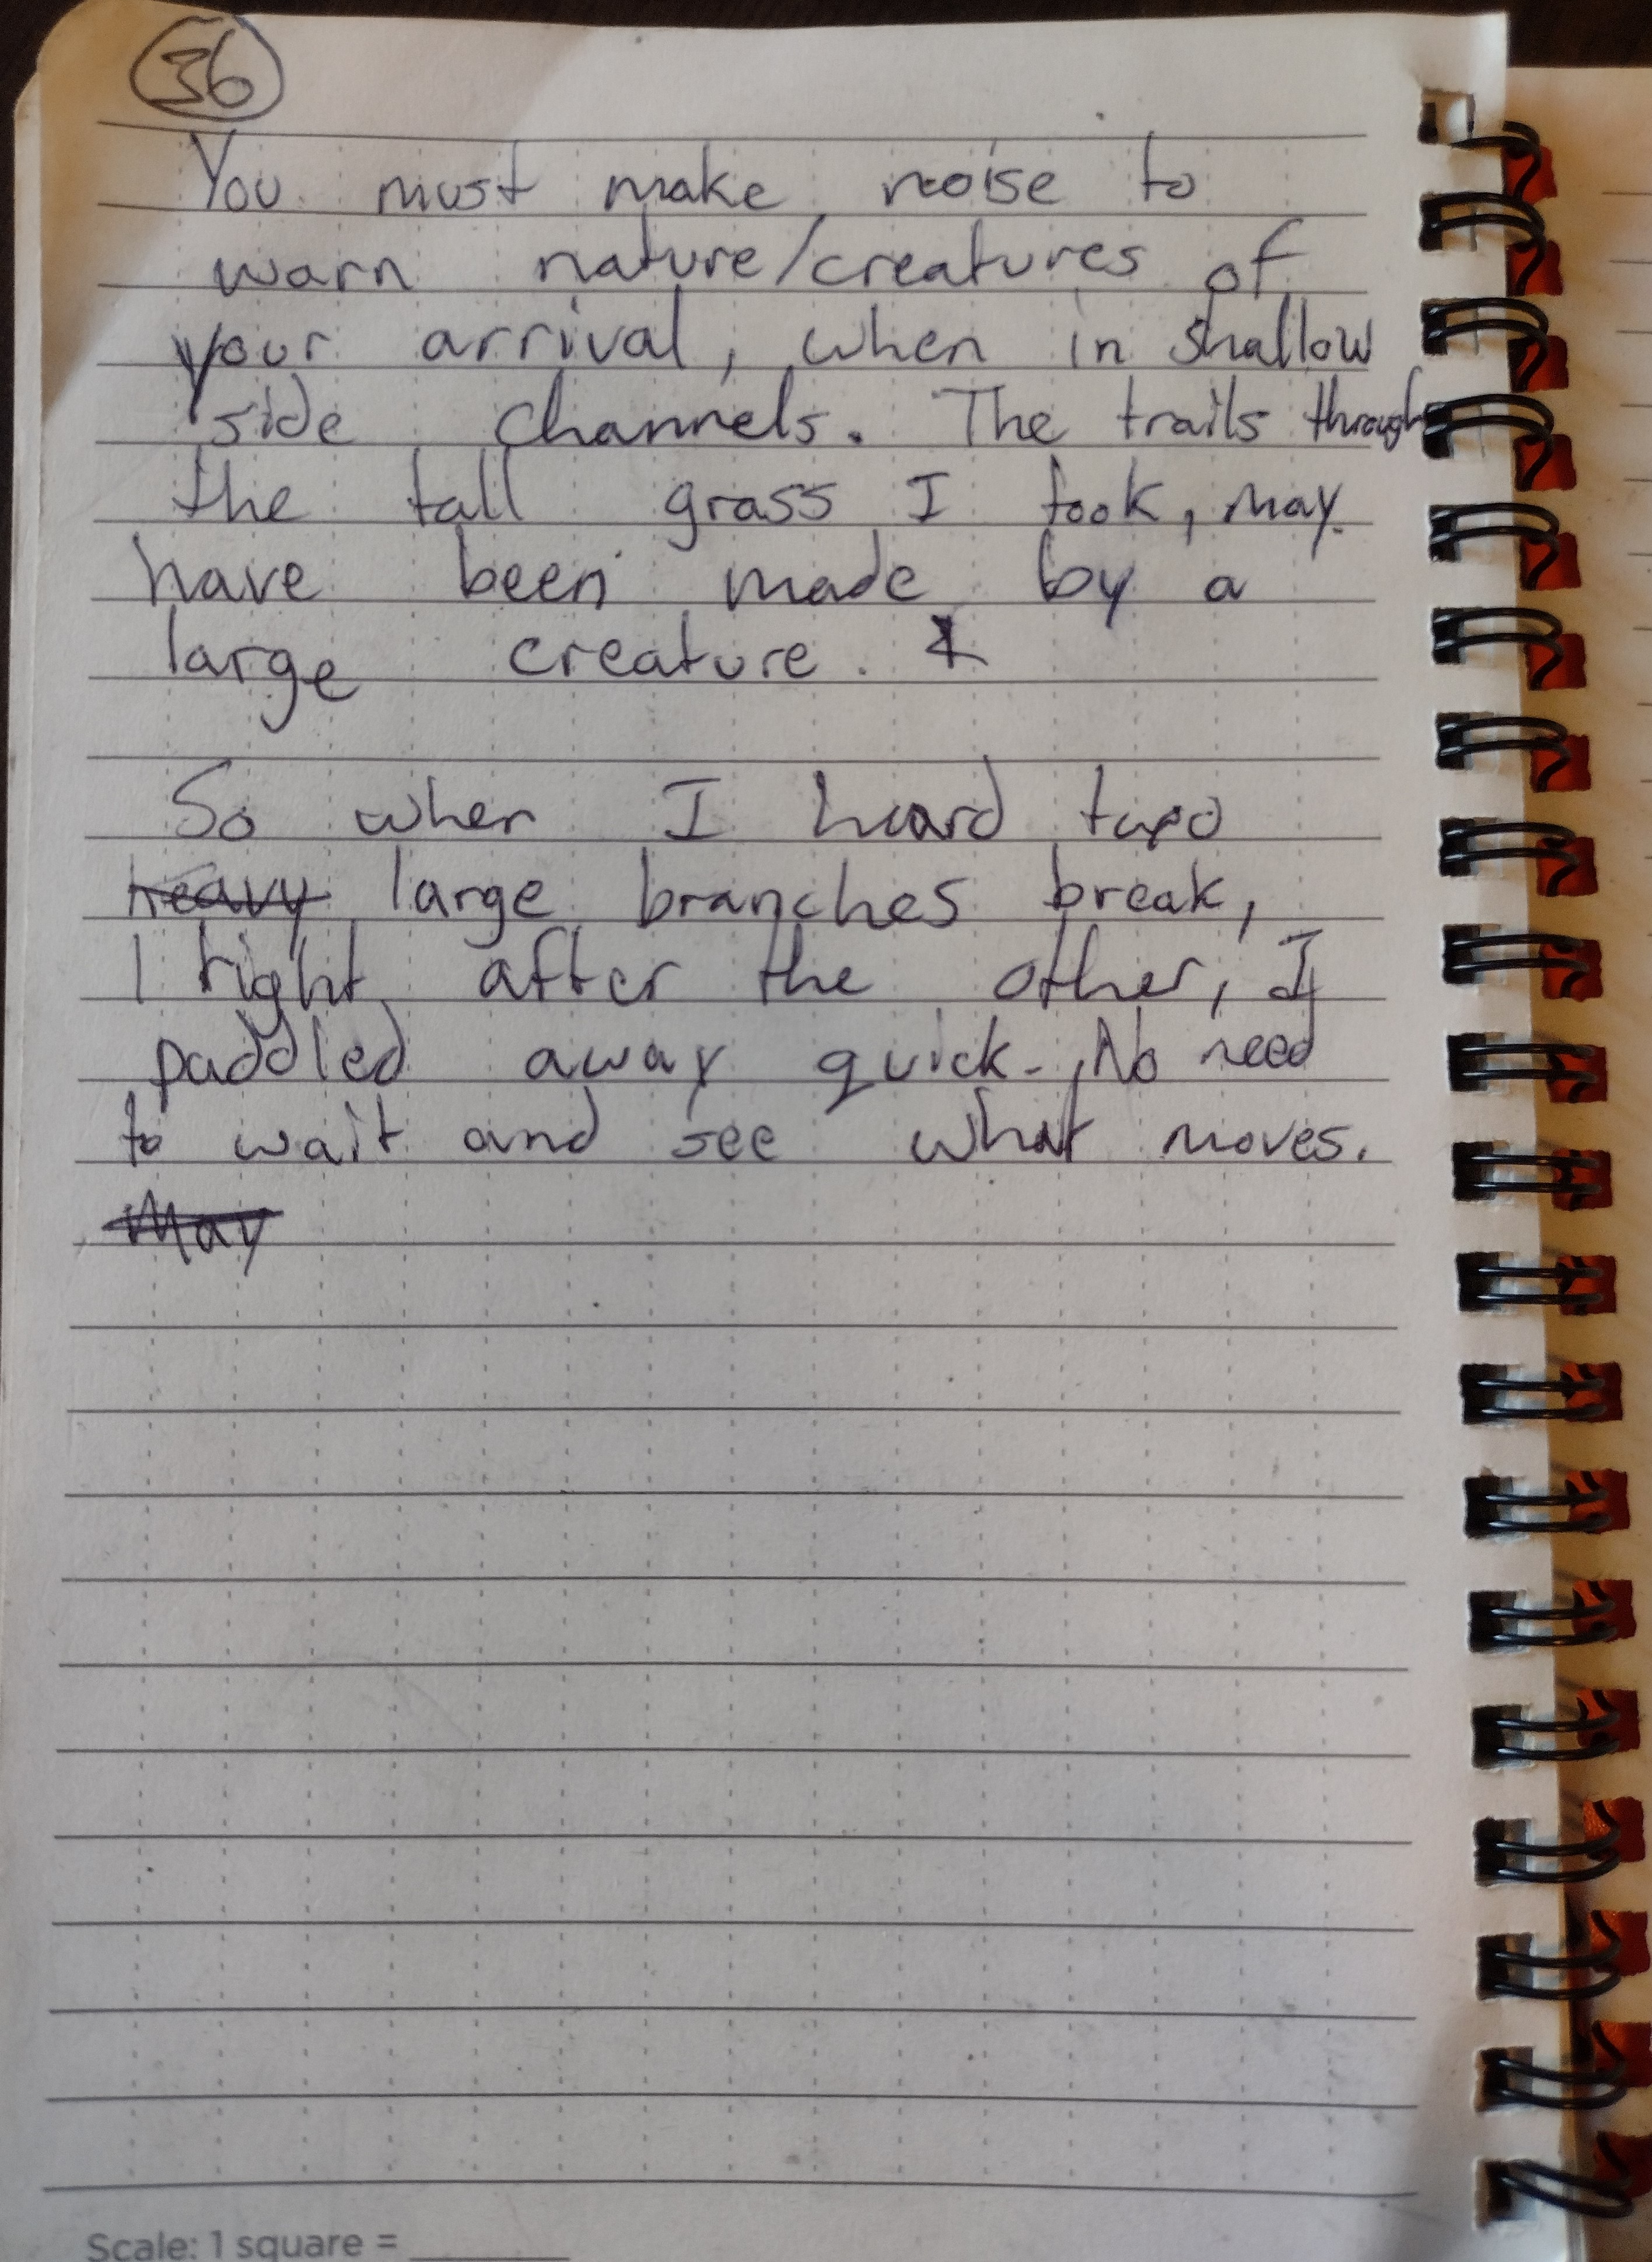 36
You must make noise to
warn nature/creatures of
your arrival, when in shallow
side channels. The trails through
the tall grass I took, may
have been made by a
large creature.
So when I heard two
heavy large branches break,
1 right after the other, I
paddled away quick. No need
to wait and see what moves.
May
Scale: 1 square =